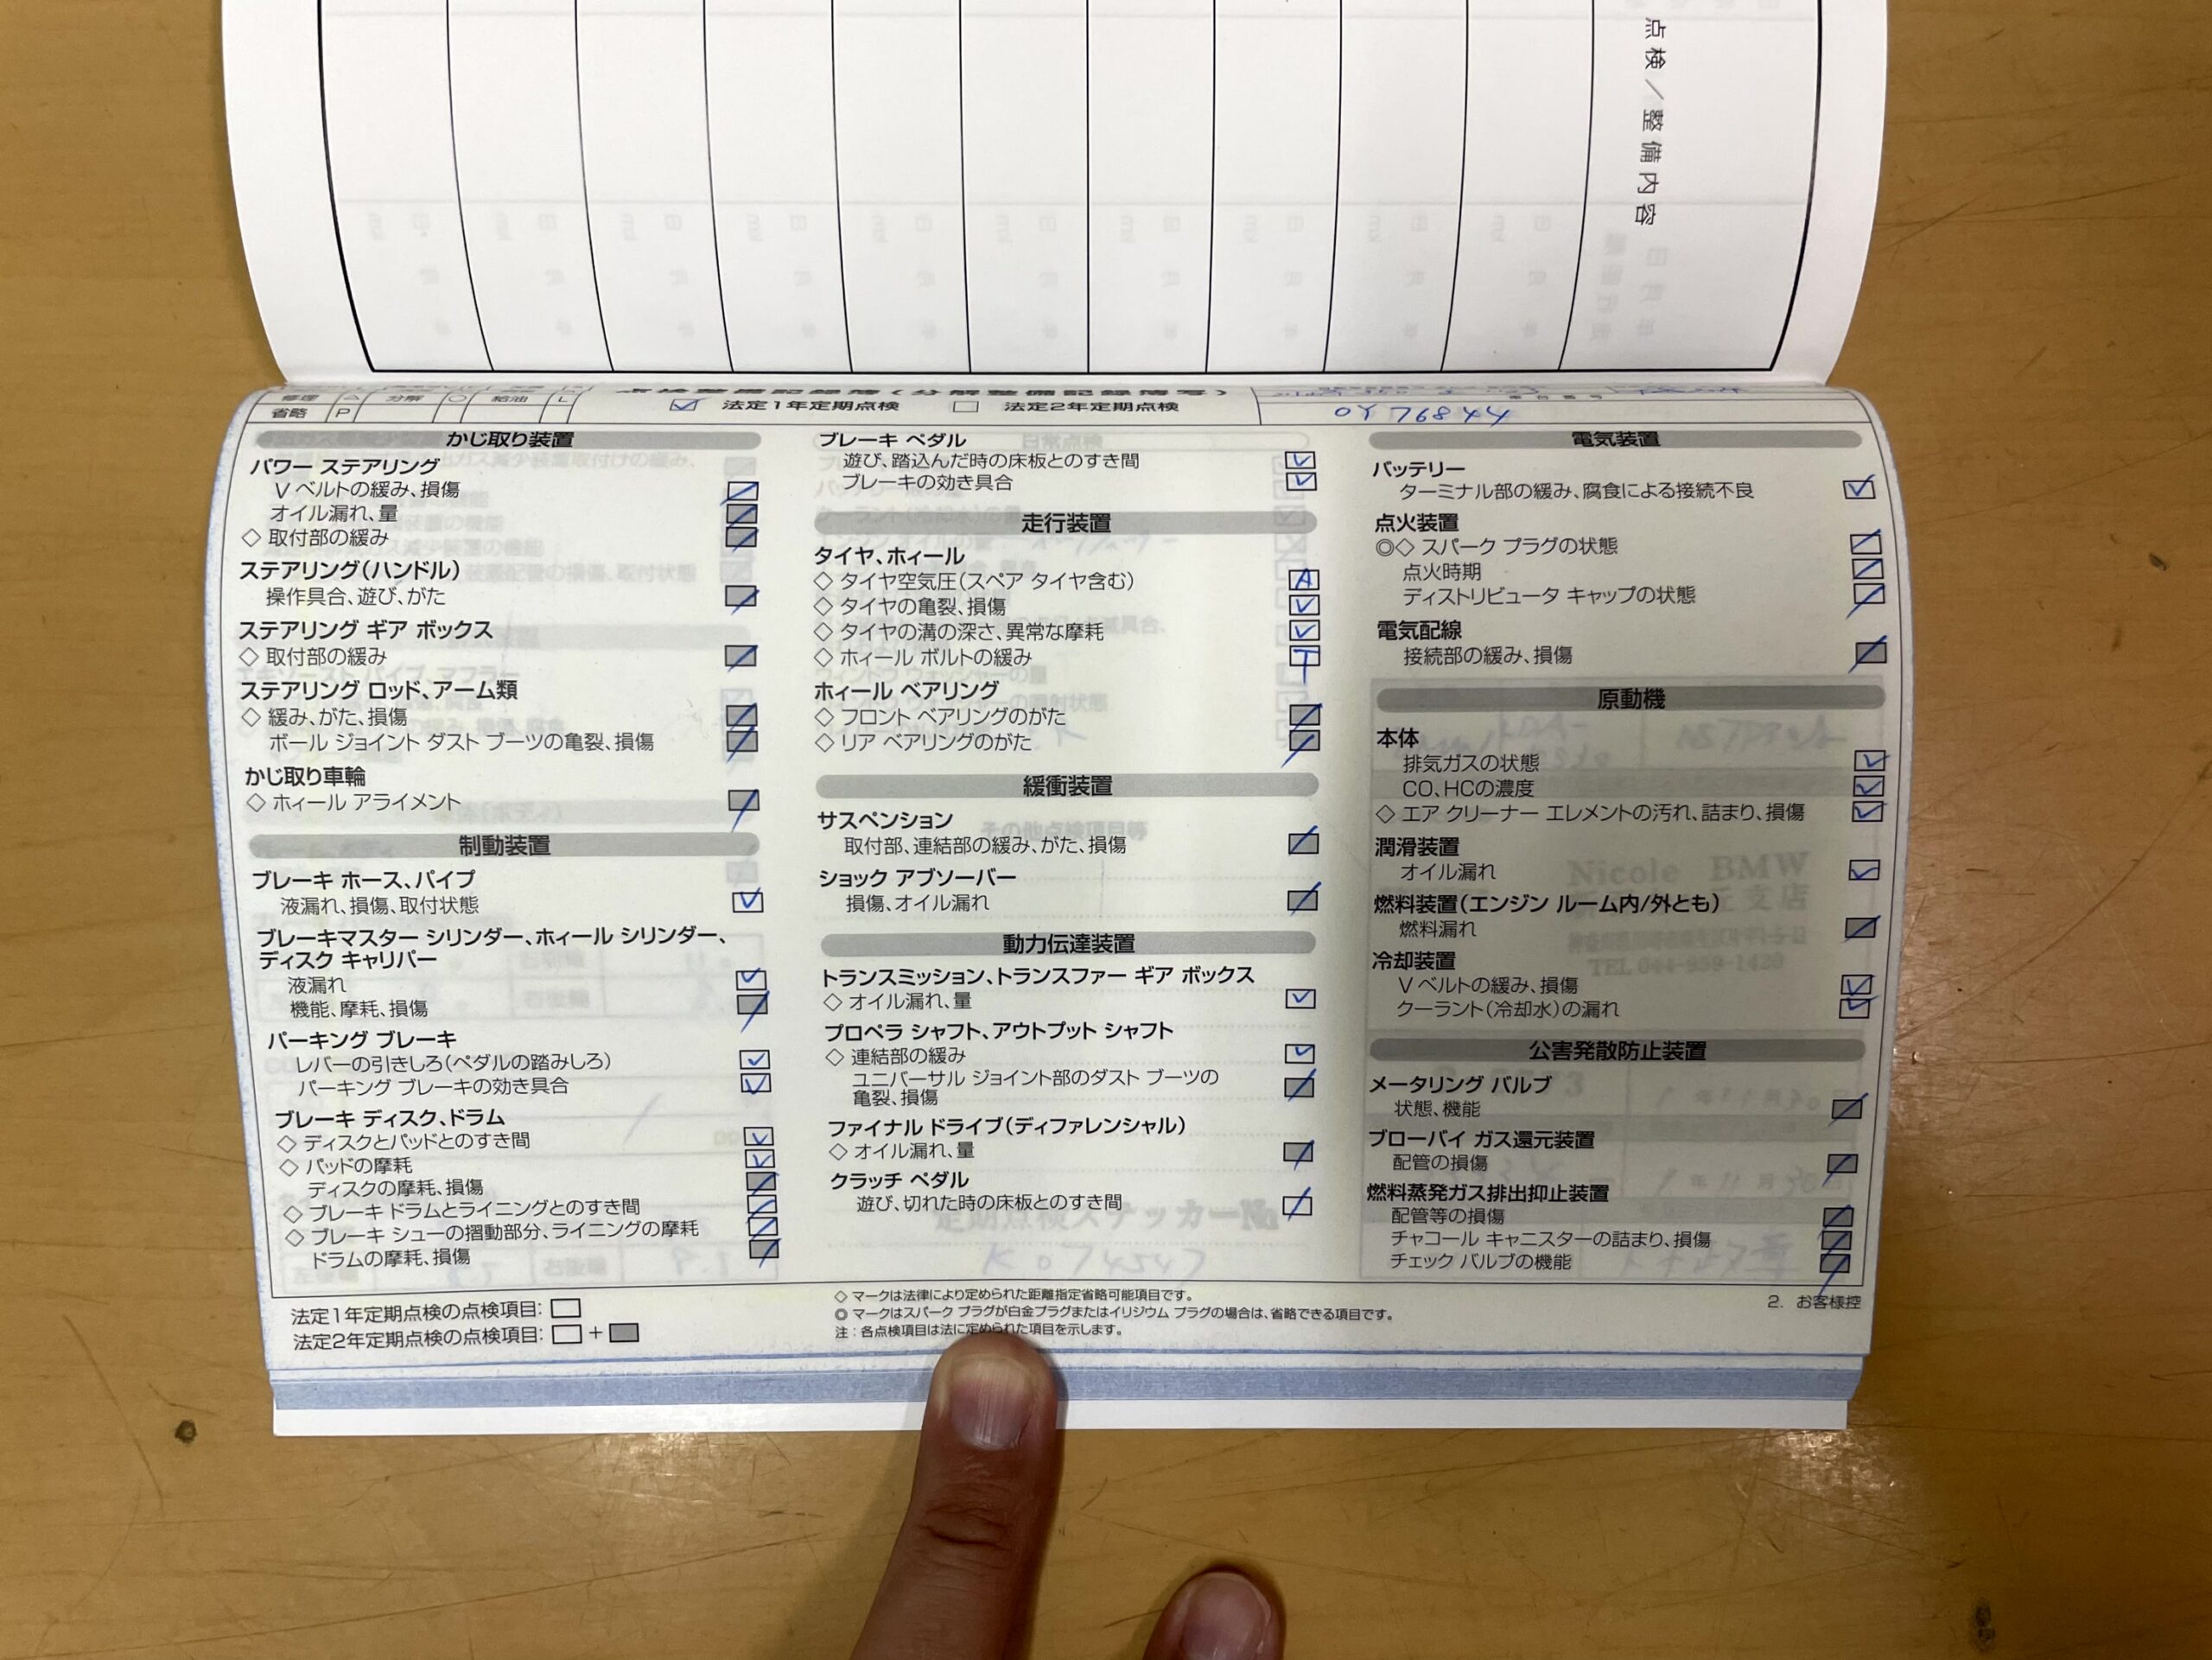 点検／整備内容
修理 △ 分解 ○ 給油 L
省略 P
点検整備記録簿（分解整備記録簿写）
☑ 法定1年定期点検 □ 法定2年定期点検
0Y76844
かじ取り装置
パワー ステアリング
V ベルトの緩み、損傷
オイル漏れ、量
◇ 取付部の緩み
ステアリング（ハンドル）
操作具合、遊び、がた
ステアリング ギア ボックス
◇ 取付部の緩み
ステアリング ロッド、アーム類
◇ 緩み、がた、損傷
ボール ジョイント ダスト ブーツの亀裂、損傷
かじ取り車輪
◇ ホィール アライメント
制動装置
ブレーキ ホース、パイプ
液漏れ、損傷、取付状態
ブレーキマスター シリンダー、ホィール シリンダー、
ディスク キャリパー
液漏れ
機能、摩耗、損傷
パーキング ブレーキ
レバーの引きしろ（ペダルの踏みしろ）
パーキング ブレーキの効き具合
ブレーキ ディスク、ドラム
◇ ディスクとパッドとのすき間
◇ パッドの摩耗
ディスクの摩耗、損傷
◇ ブレーキ ドラムとライニングとのすき間
◇ ブレーキ シューの摺動部分、ライニングの摩耗
ドラムの摩耗、損傷
ブレーキ ペダル
遊び、踏込んだ時の床板とのすき間
ブレーキの効き具合
走行装置
タイヤ、ホィール
◇ タイヤ空気圧（スペア タイヤ含む） A
◇ タイヤの亀裂、損傷
◇ タイヤの溝の深さ、異常な摩耗
◇ ホィール ボルトの緩み T
ホィール ベアリング
◇ フロント ベアリングのがた
◇ リア ベアリングのがた
緩衝装置
サスペンション
取付部、連結部の緩み、がた、損傷
ショック アブソーバー
損傷、オイル漏れ
動力伝達装置
トランスミッション、トランスファー ギア ボックス
◇ オイル漏れ、量
プロペラ シャフト、アウトプット シャフト
◇ 連結部の緩み
ユニバーサル ジョイント部のダスト ブーツの
亀裂、損傷
ファイナル ドライブ（ディファレンシャル）
◇ オイル漏れ、量
クラッチ ペダル
遊び、切れた時の床板とのすき間
電気装置
バッテリー
ターミナル部の緩み、腐食による接続不良
点火装置
◎◇ スパーク プラグの状態
点火時期
ディストリビュータ キャップの状態
電気配線
接続部の緩み、損傷
原動機
本体
排気ガスの状態
CO、HCの濃度
◇ エア クリーナー エレメントの汚れ、詰まり、損傷
潤滑装置
オイル漏れ
燃料装置（エンジン ルーム内/外とも）
燃料漏れ
冷却装置
V ベルトの緩み、損傷
クーラント（冷却水）の漏れ
公害発散防止装置
メータリング バルブ
状態、機能
ブローバイ ガス還元装置
配管の損傷
燃料蒸発ガス排出抑止装置
配管等の損傷
チャコール キャニスターの詰まり、損傷
チェック バルブの機能
法定1年定期点検の点検項目：□
法定2年定期点検の点検項目：□＋■
◇ マークは法律により定められた距離指定省略可能項目です。
◎ マークはスパーク プラグが白金プラグまたはイリジウム プラグの場合は、省略できる項目です。
注：各点検項目は法に定められた項目を示します。
2. お客様控